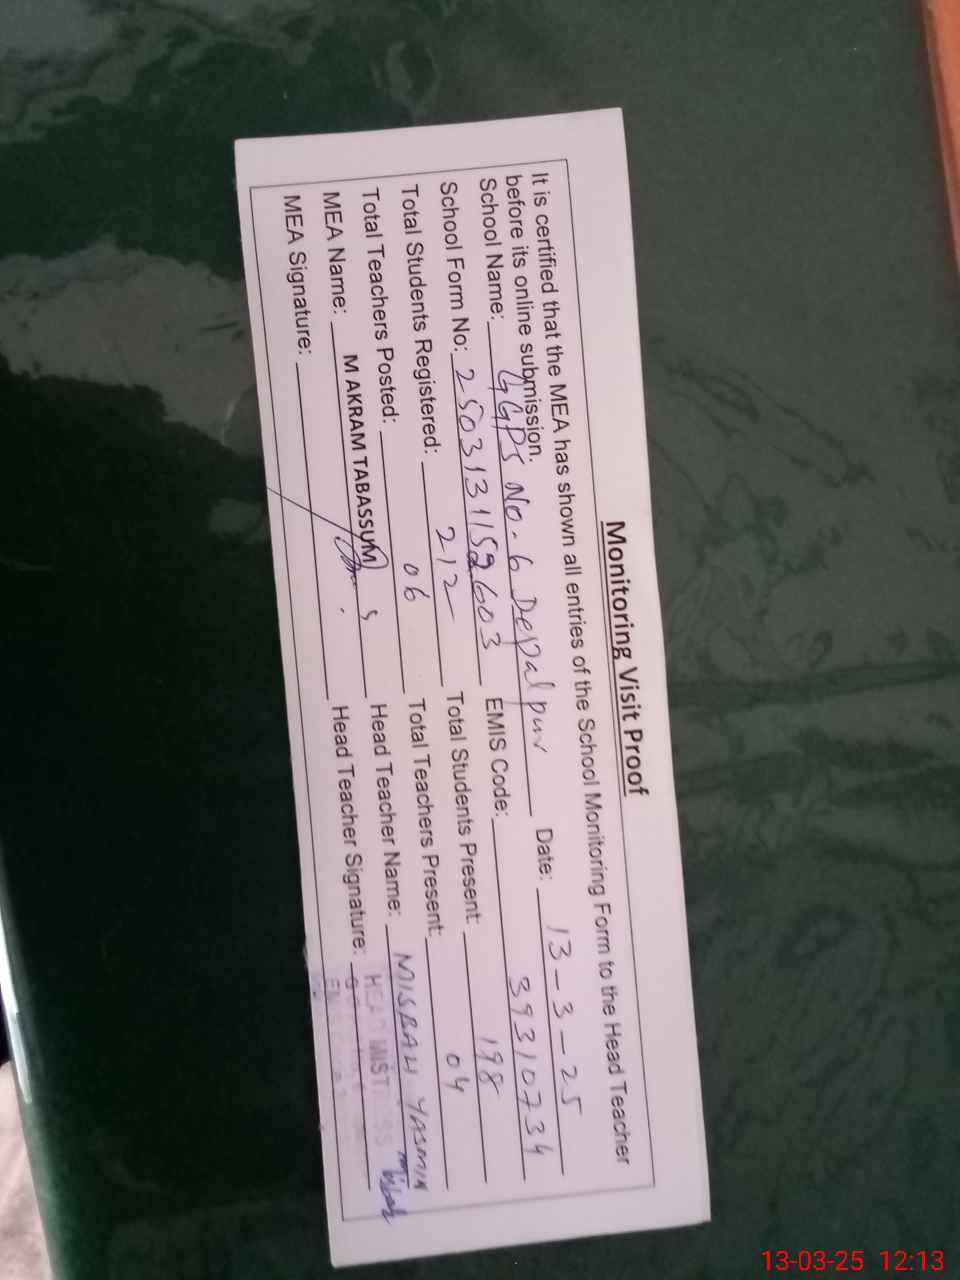 Monitoring Visit Proof
It is certified that the MEA has shown all entries of the School Monitoring Form to the Head Teacher
before its online submission.
School Name: GGPS No. 6 Depalpur Date: 13-3-25
School Form No: 2503131152603 EMIS Code: 39310734
Total Students Registered: 212 Total Students Present: 198
Total Teachers Posted: 06 Total Teachers Present: 04
MEA Name: M AKRAM TABASSUM Head Teacher Name: MISBAH YASMIN
MEA Signature: Head Teacher Signature:
HEAD MISTRESS
13-03-25 12:13